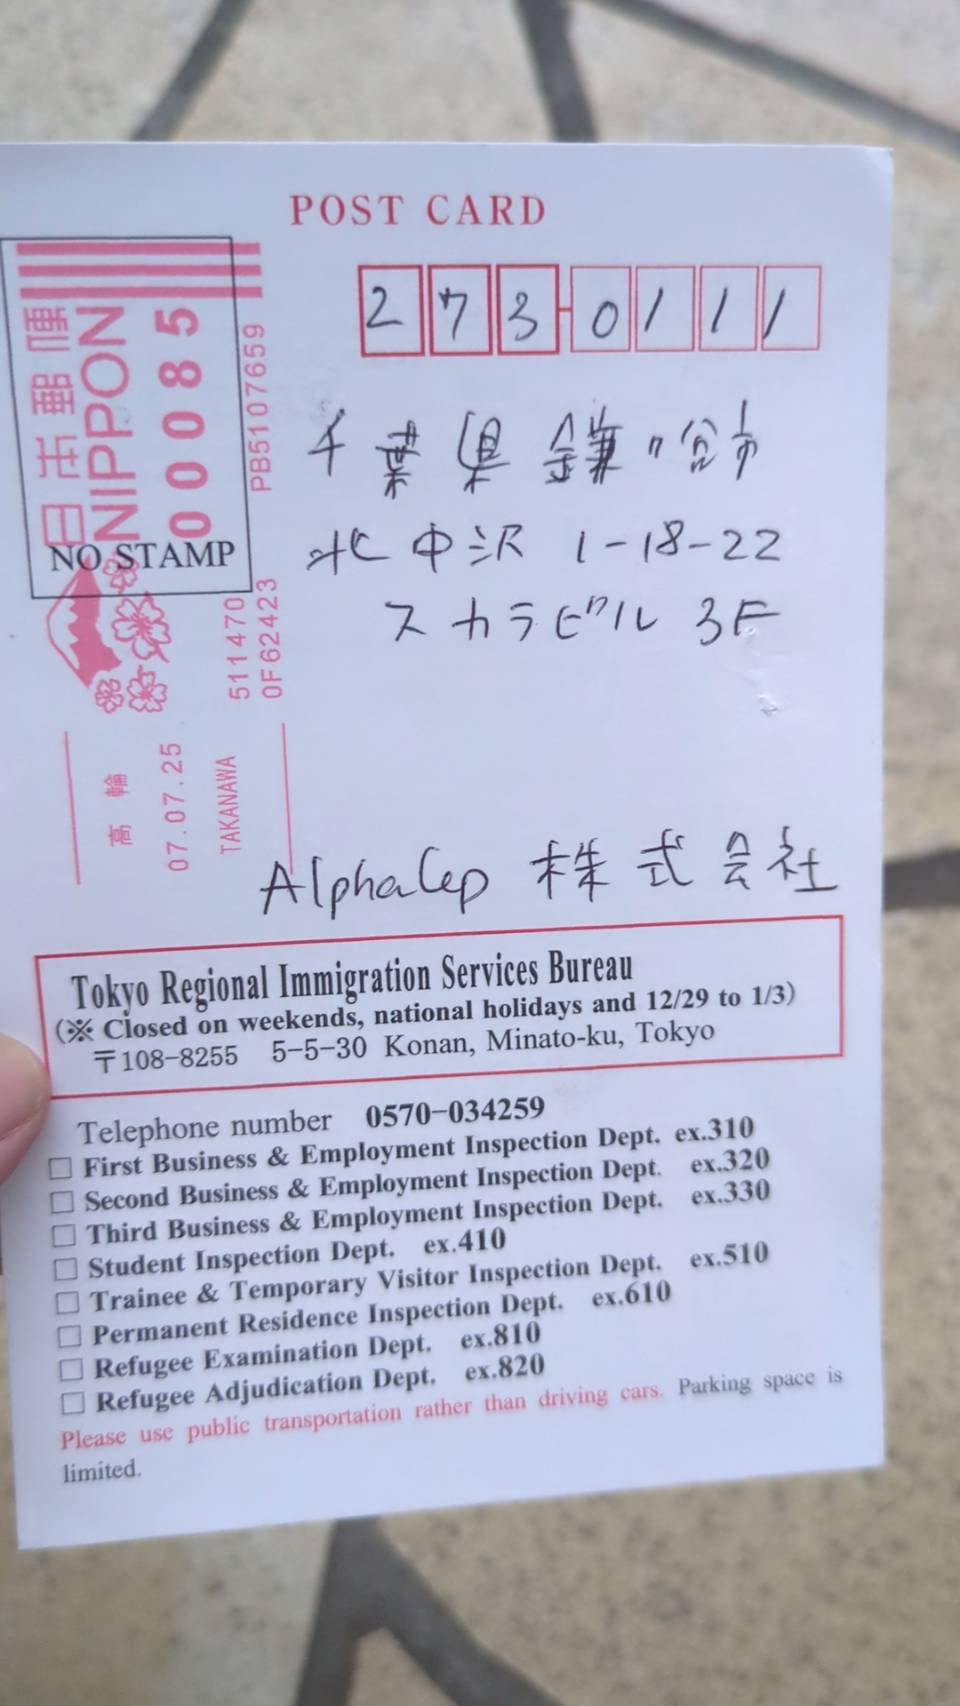 POST CARD
273-0111
千葉県鎌ヶ谷市
北中沢 1-18-22
スカラビル 3F
AlphaCep 株式会社
日本郵便
NIPPON
00085
PB5107659
NO STAMP
511470
0F62423
高輪
07.07.25
TAKANAWA
Tokyo Regional Immigration Services Bureau
(※ Closed on weekends, national holidays and 12/29 to 1/3)
〒108-8255 5-5-30 Konan, Minato-ku, Tokyo
Telephone number 0570-034259
□ First Business & Employment Inspection Dept. ex.310
□ Second Business & Employment Inspection Dept. ex.320
□ Third Business & Employment Inspection Dept. ex.330
□ Student Inspection Dept. ex.410
□ Trainee & Temporary Visitor Inspection Dept. ex.510
□ Permanent Residence Inspection Dept. ex.610
□ Refugee Examination Dept. ex.810
□ Refugee Adjudication Dept. ex.820
Please use public transportation rather than driving cars. Parking space is
limited.